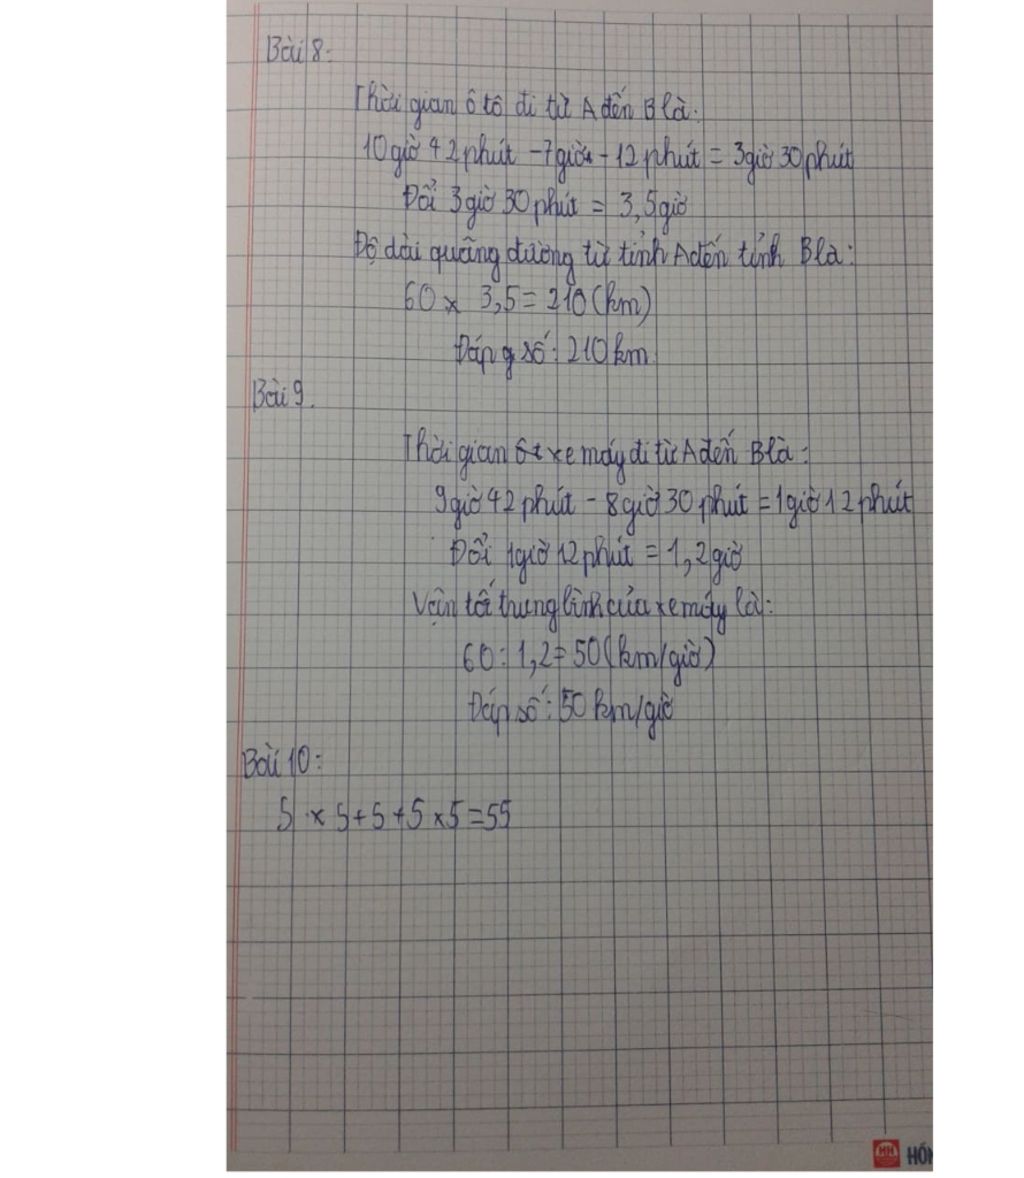 Bài 8:
Thời gian ô tô đi từ A đến B là:
10 giờ 42 phút - 7 giờ - 12 phút = 3 giờ 30 phút
Đổi 3 giờ 30 phút = 3,5 giờ
Độ dài quãng đường từ tỉnh A đến tỉnh B là:
60 x 3,5 = 210 (km)
Đáp số: 210 km
Bài 9.
Thời gian xe máy đi từ A đến B là:
9 giờ 42 phút - 8 giờ 30 phút = 1 giờ 12 phút
Đổi 1 giờ 12 phút = 1,2 giờ
Vận tố trung bình của xe máy là:
60 : 1,2 = 50 (km/giờ)
Đáp số: 50 km/giờ
Bài 10:
5 x 5 + 5 + 5 x 5 = 55
HH HỒN